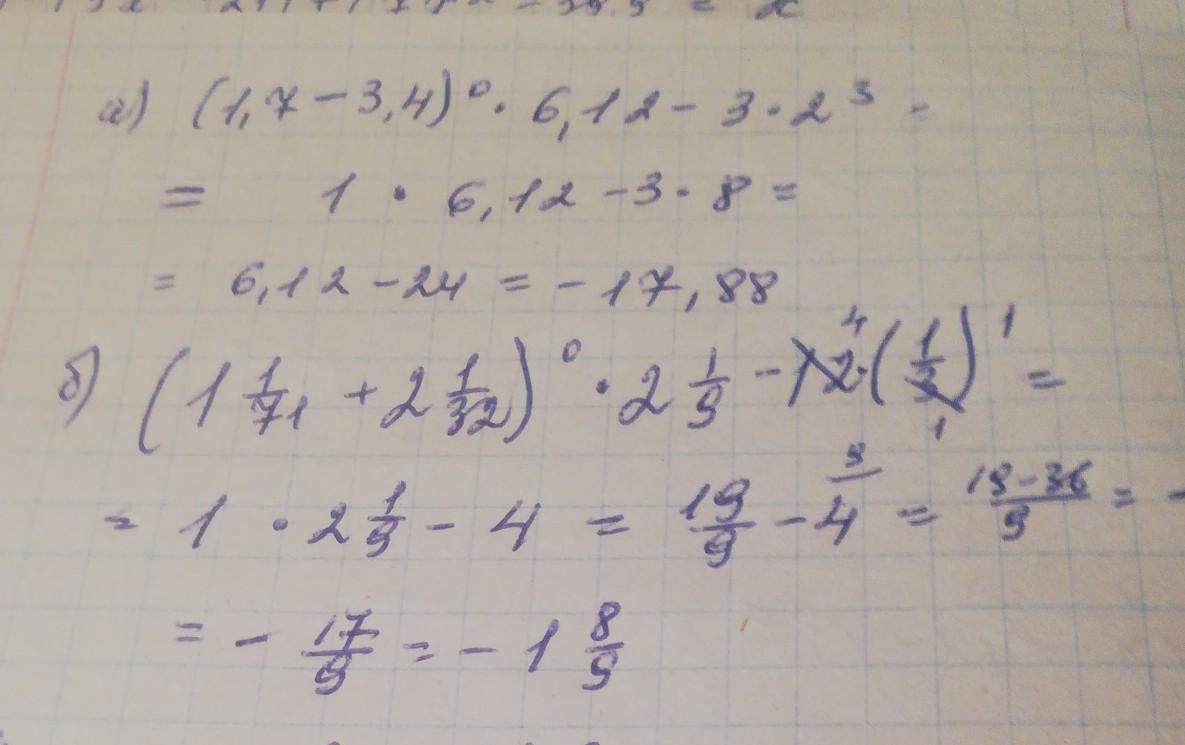 а) (1,7 - 3,4)⁰ · 6,12 - 3 · 2³ =
= 1 · 6,12 - 3 · 8 =
= 6,12 - 24 = - 17,88
б) (1 1/71 + 2 1/32)⁰ · 2 1/9 - 12 · (1/3)¹ =
= 1 · 2 1/9 - 4 = 19/9 - 4 = 19-36/9 = -
= - 17/9 = - 1 8/9